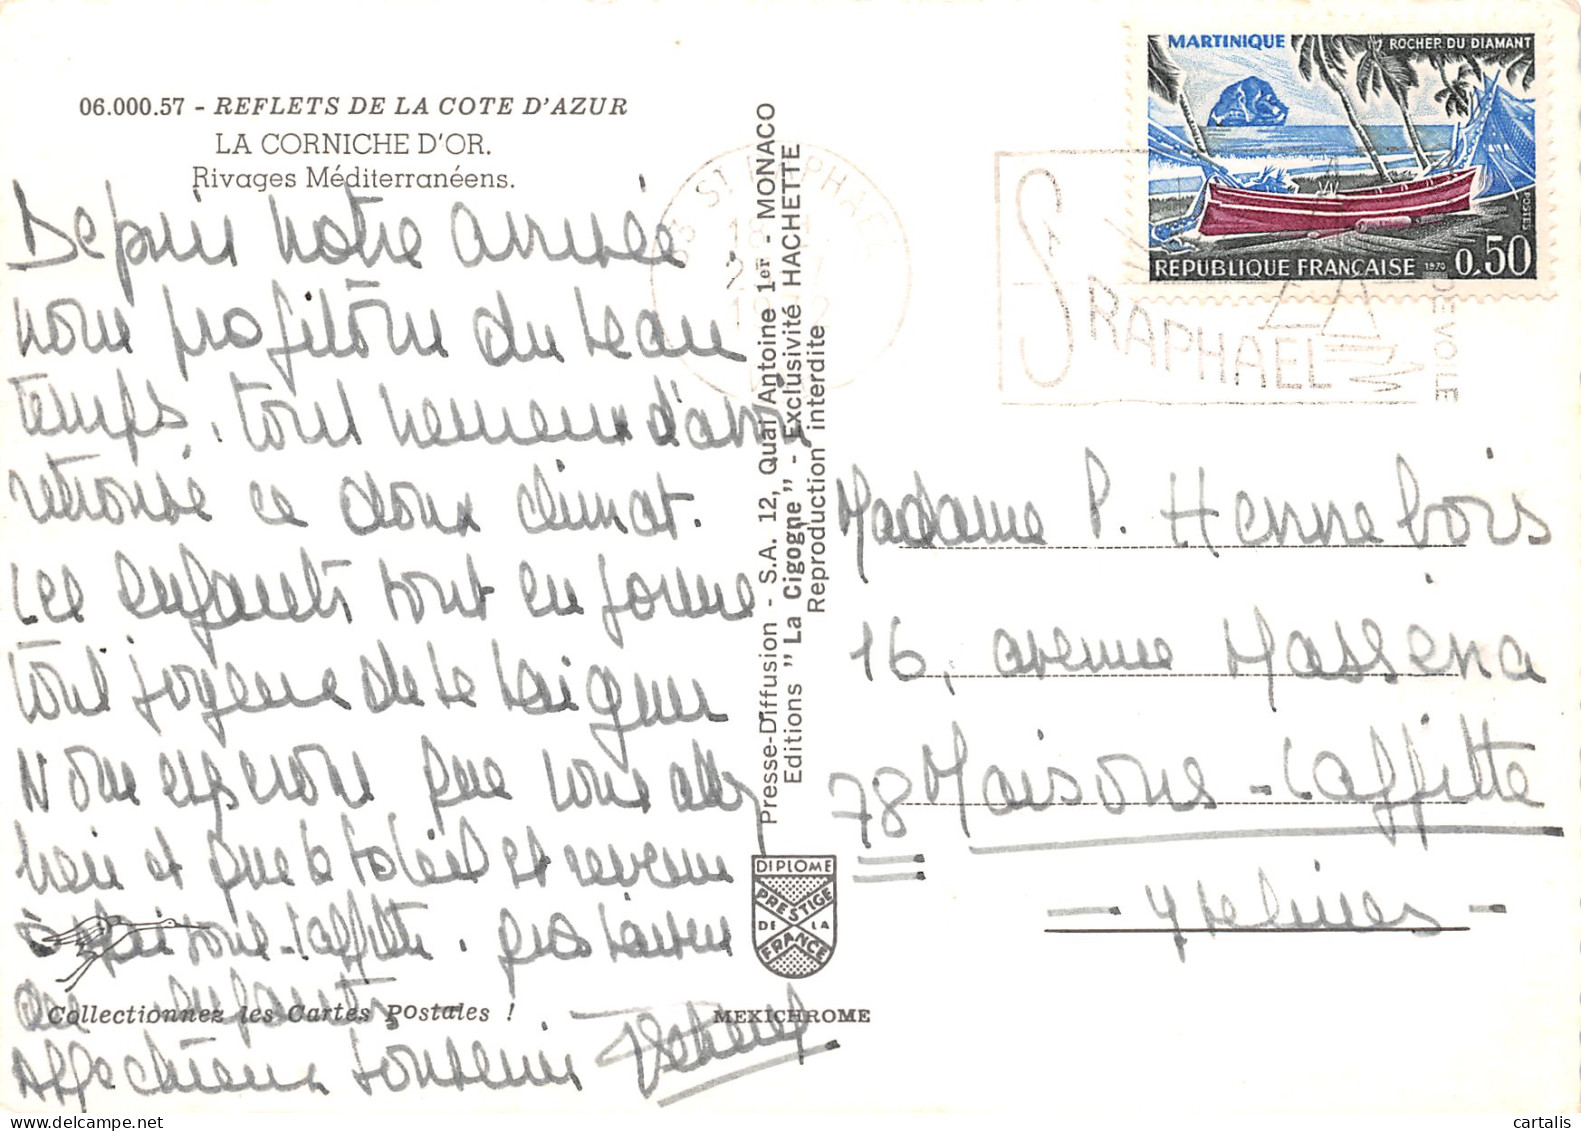 06.000.57 - REFLETS DE LA COTE D'AZUR
LA CORNICHE D'OR.
Rivages Méditerranéens.
Depuis notre arrivée
nous profitons du beau
temps, tout heureux d'avoir
retrouvé ce doux climat.
Les enfants sont en forme
tout joyeux de se baigner
Nous espérons que vous allez
bien et que le soleil est revenu
à Maisons-Laffitte. gros baisers
des enfants
Affectueux souvenir
Collectionnez les Cartes Postales !
Presse-Diffusion - S.A. 12, Quai Antoine 1er - MONACO
Editions "La Cigogne" - Exclusivité HACHETTE
Reproduction interdite
DIPLOME
PRESTIGE
DE LA
FRANCE
MEXICHROME
MARTINIQUE
ROCHER DU DIAMANT
POSTES
REPUBLIQUE FRANÇAISE 1970 0,50
ST RAPHAEL
St RAPHAEL
DE VOILE
Madame P. Hennebois
16, avenue Massena
78 Maisons-Laffitte
- Yvelines -
cartalis